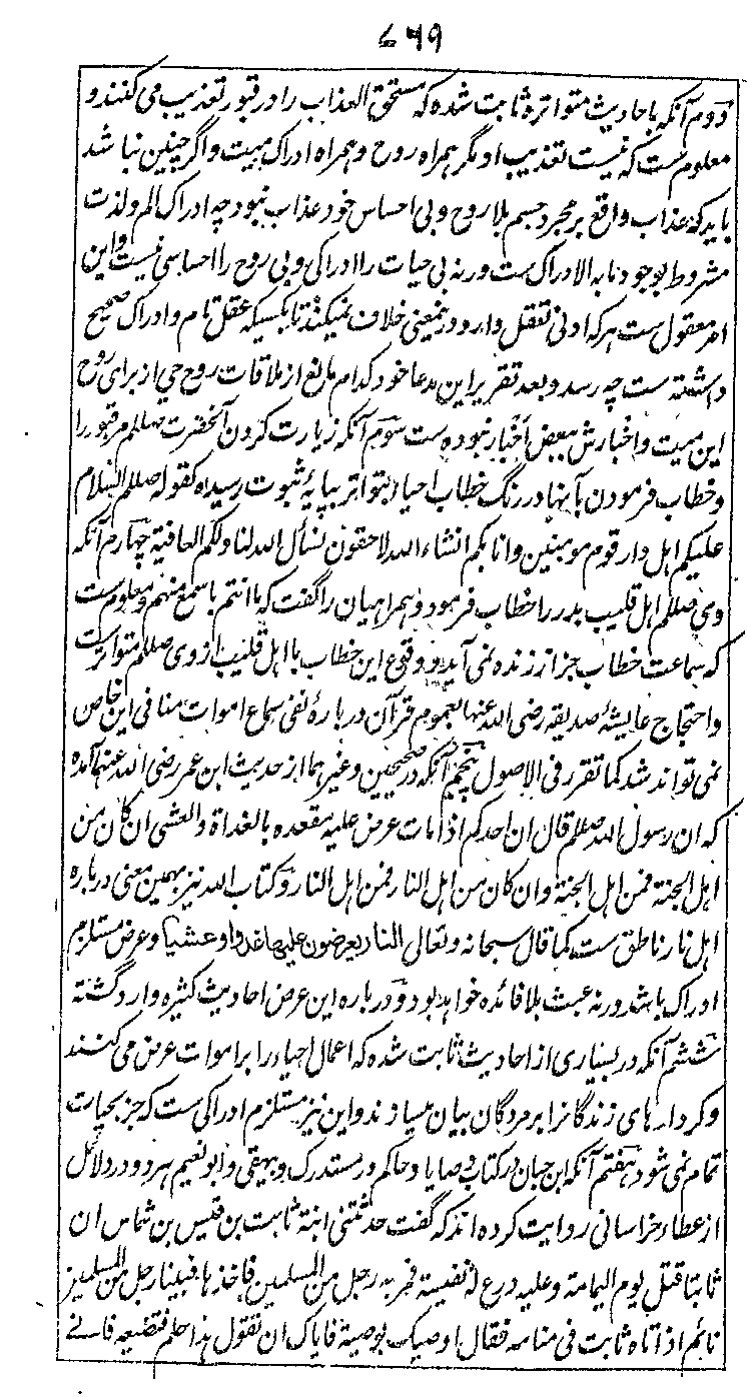 ۷۴۹
دوم آنکه باحادیث متواتره ثابت شده که مستحق العذاب را در قبور تعذیب می کنند و
معلوم ست که نیست تعذیب او مگر همراه روح و همراه ادراک میت و اگر چنین نباشد
باید که عذاب واقع بر مجرد جسم بلا روح و بی احساس خود عذاب نبود چه ادراک الم و لذت
مشروط بوجود ما به الادراک ست ورنه بی حیات را ادراکی و بی روح را احساسی نیست و این
امر معقول ست هرکه ادنی تعقل دارد درینمعنی خلاف نمیکند تا بکسیکه عقل تام و ادراک صحیح
داشته ست چه رسد و بعد تقریر این مدعا خود کدام مانع از ملاقات روح حی از برای روح
این میت و اخبارش ببعض اخبار نبوده ست سوم آنکه زیارت کردن آنحضرت صللم مر قبور را
و خطاب فرمودن بآنها در رنگ خطاب احیاء بتواتر بپایهٔ ثبوت رسیده کقوله صللم السلام
علیکم اهل دار قوم مومنین وانا بکم انشاء الله لاحقون نسأل الله لنا ولکم العافیة چهارم آنکه
وی صللم اهل قلیب بدر را خطاب فرمود و همراهیان را گفت که ما انتم باسمع منهم و معلوم ست
که سماعت خطاب جز از زنده نمی آید و وقوع این خطاب با اهل قلیب از وی صللم متواتر ست
و احتجاج عایشهٔ صدیقه رضی الله عنها بعموم قرآن دربارهٔ نفی سماع اموات منافی این خاص
نمی تواند شد کما تقرر فی الاصول پنجم آنکه در صحیحین و غیرهما از حدیث ابن عمر رضی الله عنهما آمده
که ان رسول الله صللم قال ان احدکم اذا مات عرض علیه مقعده بالغداة والعشی ان کان من
اهل الجنة فمن اهل الجنة وان کان من اهل النار فمن اهل النار و کتاب الله نیز بهمین معنی درباره
اهل نار ناطق ست کما قال سبحانه وتعالی النار یعرضون علیها غدوا وعشیا و عرض مستلزم
ادراک باشد ورنه عبث بلا فائده خواهد بود و درباره این عرض احادیث کثیره وارد گشته
ششم آنکه در بسیاری از احادیث ثابت شده که اعمال احیاء را بر اموات عرض می کنند
و کردارهای زندگانرا بر مردگان بیان میسازند و این نیز مستلزم ادراکی ست که جز بحیات
تمام نمی شود هفتم آنکه ابن حبان در کتاب وصایا و حاکم در مستدرک و بیهقی و ابو نعیم هر دو در دلائل
از عطاء خراسانی روایت کرده اند که گفت حدثتنی ابنة ثابت بن قیس بن شماس ان
ثابتا قتل یوم الیمامة وعلیه درع له نفیسة فمر به رجل من المسلمین فاخذها فبینا رجل من المسلمین
نائم اذ اتاه ثابت فی منامه فقال اوصیک بوصیة فایاک ان تقول هذا حلم فتضیعه فانی